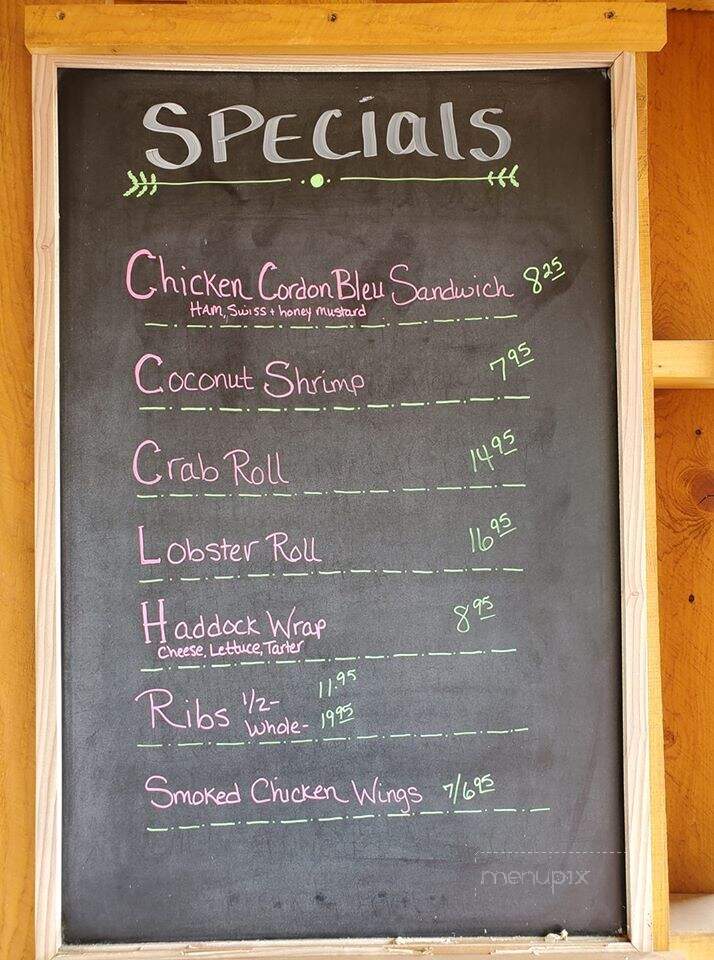 SPECials
Chicken Cordon Bleu Sandwich 8 25
HAM, Swiss + honey mustard
Coconut Shrimp 7 95
Crab Roll 14 95
Lobster Roll 16 95
Haddock Wrap 8 95
Cheese, Lettuce, Tarter
Ribs 1/2- 11.95
Whole- 19 95
Smoked Chicken Wings 7/6 95
menupix